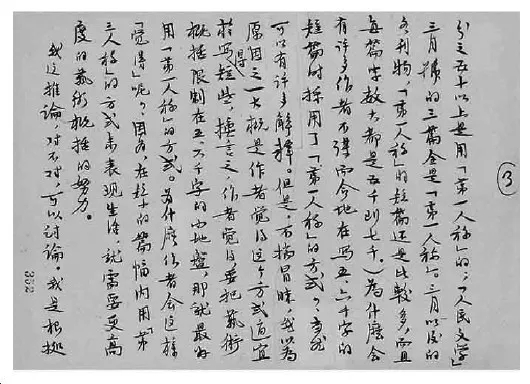 ③
分之五十以上是用「第一人称」的，「人民文学」
三月號的三篇全是「第一人称」。三月以后的
各刊物，「第一人称」的短篇还是比較多，而且
每篇字数大都是五千到七千。）為什麼会
有許多作者不谋而合地在写五、六千字的
短篇时採用了「第一人称」的方式？
可以有许多解釋。但是，不揣冒昧，我以为
原因之一大概是作者觉得这个方式適宜
於写得短些，換言之，作者觉得要把藝術
概括限制在五、六千字的小地盤，那就最好
用「第一人称」的方式。为什麼作者会这样
「觉得」呢？因为，在短小的篇幅内用「第
三人称」的方式来表現生活，就需要更高
度的藝術概括的努力。
我这推論，对不对，可以讨論。我是根据
352